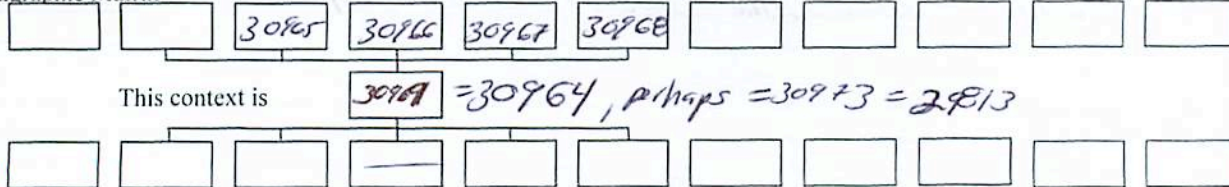 30965 30966 30967 30968
This context is 30969 =30964, perhaps =30973 = 29813